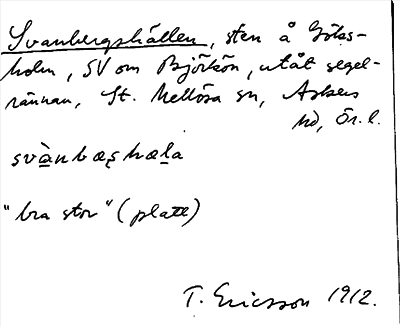 Svanbergshällen, sten å Göks-
holm, SV om Björkön, utåt segel-
rännan, St. Mellösa sn, Askers
hd, Ör. l.
svànbæʂhæla
"bra stor" (platt)
T. Ericsson 1912.